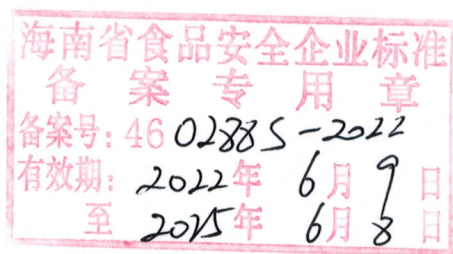 海南省食品安全企业标准
备案专用章
备案号: 46 0288S-2022
有效期: 2022年 6月 9日
至 2025年 6月 8日